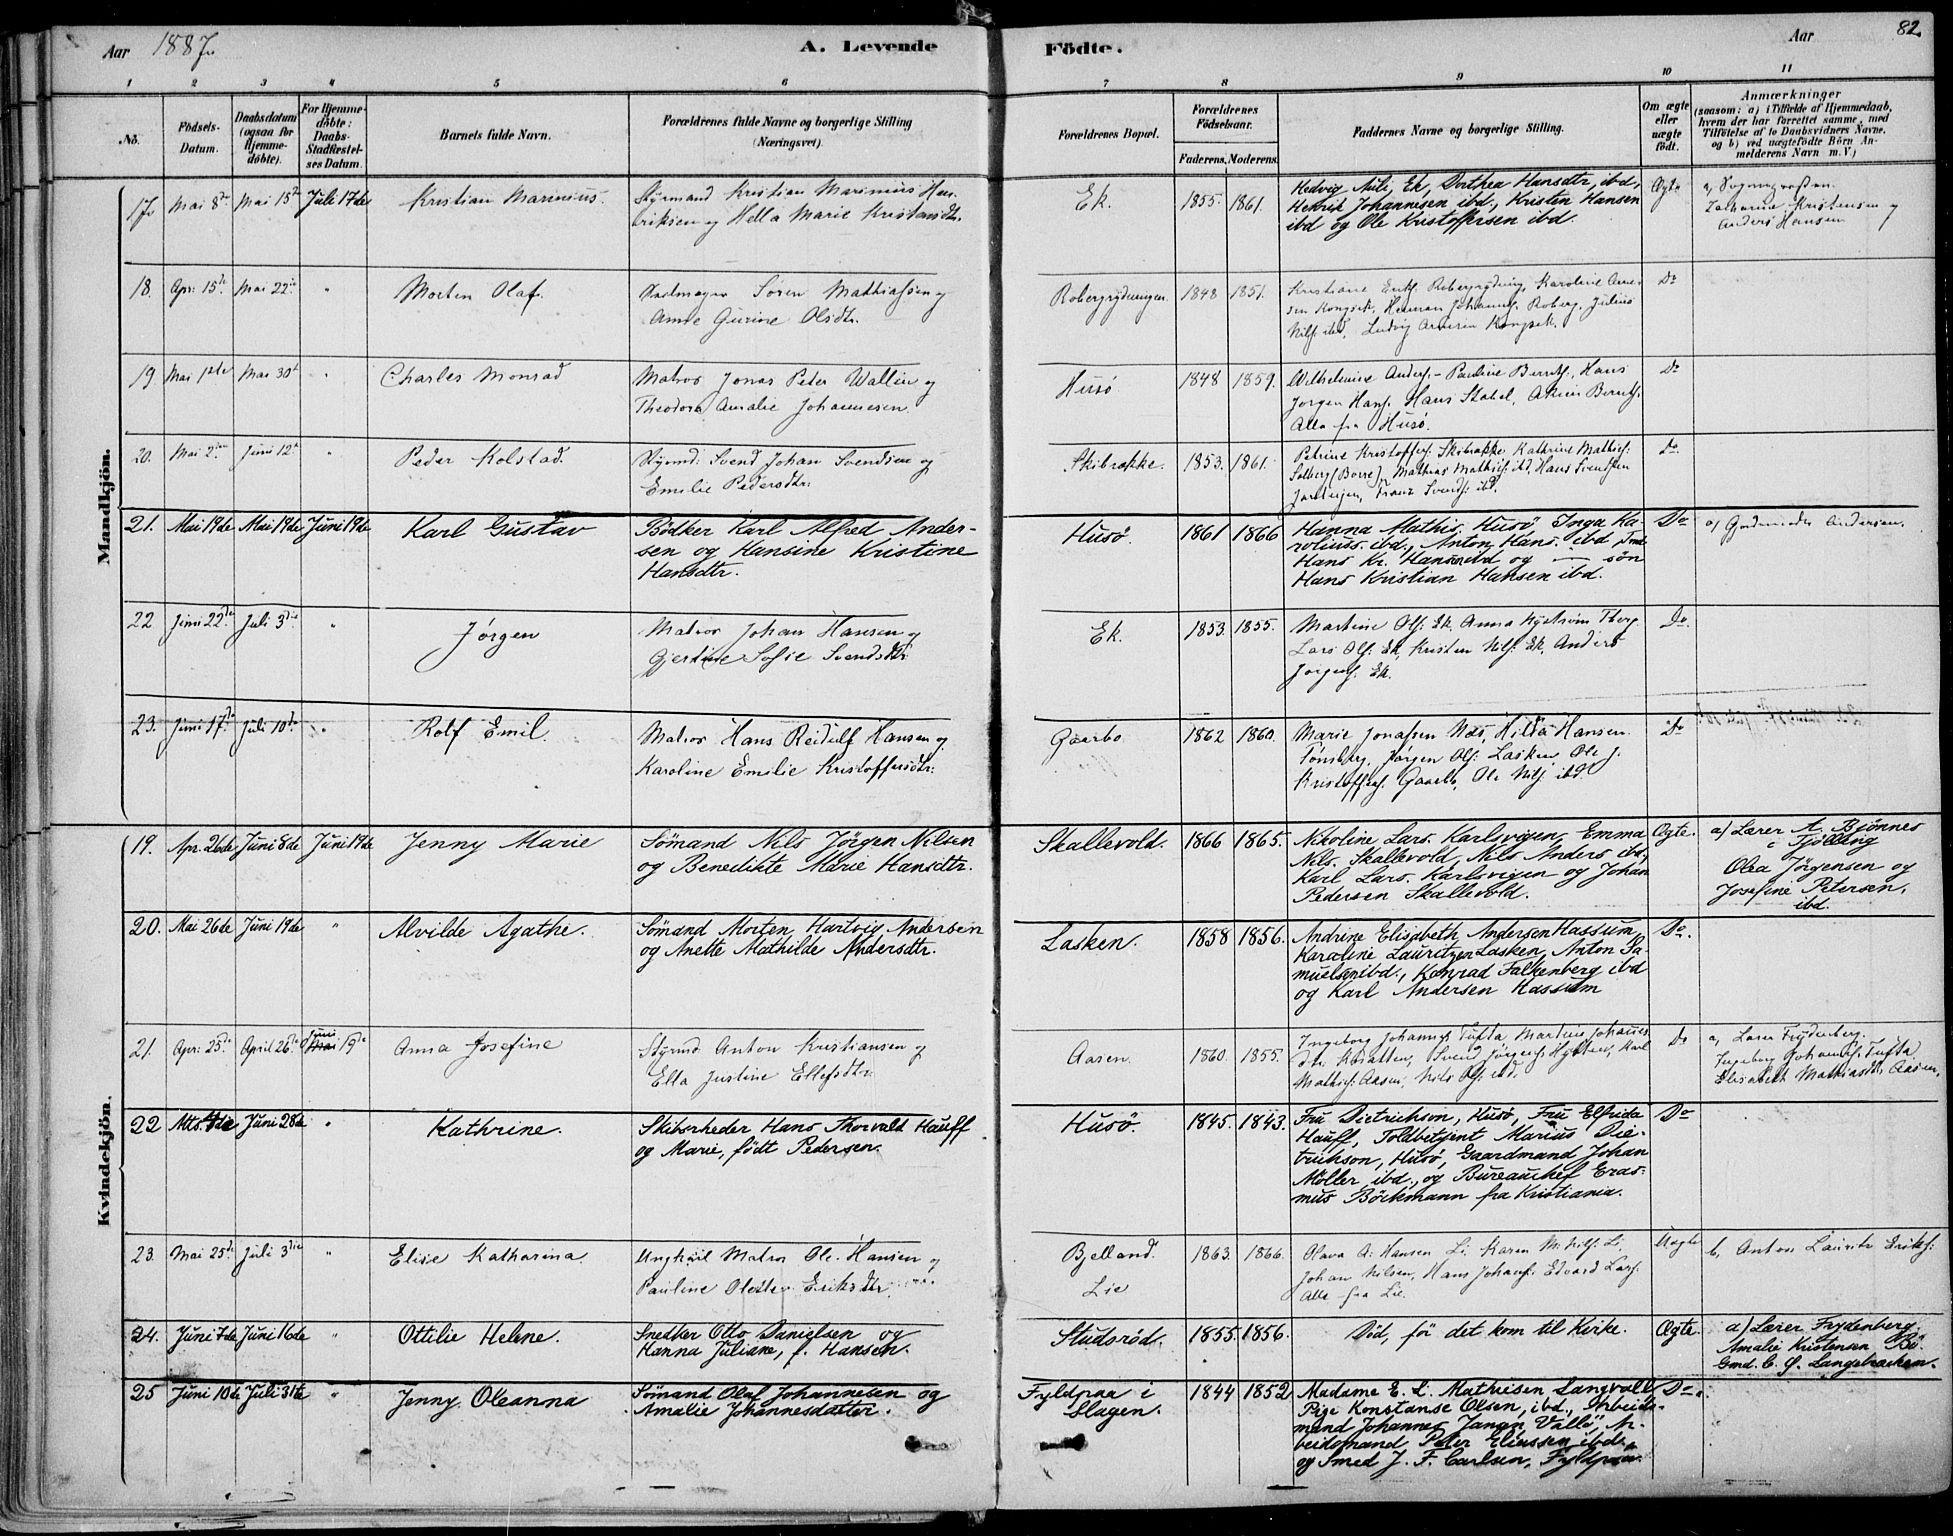 Aar 1887.
A. Levende
Födte.
Aar
82.
1 2 3 4 5 6 7 8 9 10 11
No.
Födsels-
Datum.
Daabsdatum
(ogsaa for
Hjemme-
döbte).
For Hjemme-
döbte:
Daabs-
Stadfæstel-
ses Datum.
Barnets fulde Navn.
Forældrenes fulde Navne og borgerlige Stilling
(Næringsvei).
Forældrenes Bopæl.
Forældrenes
Födselsaar.
Faderens. Moderens.
Faddernes Navne og borgerlige Stilling.
Om ægte
eller
uægte
födt.
Anmærkninger
(saasom: a) i Tilfælde af Hjemmedaab,
hvem der har forrettet samme, med
Tilföielse af to Daabsvidners Navne,
og b) ved uægtefödte Börn An-
melderens Navn m.V.)
Mandkjön.
17. Mai 8de Mai 15de Juli 17de Kristian Marinius.
Styrmand Kristian Marinius Hen-
driksen og Hella Marie Kristansdtr.
Ek. 1855. 1861.
Hedvig Nils, Ek, Dorthea Hansdtr, ibd,
Henrik Johannesen ibd., Kristen Hansen
ibd og Ole Kristoffersen ibd.
Ægte
a,
Kristensen og
Anders Hansen
18. Apr. 15de Mai 22de " Morten Olaf.
Søren Mathiassen og
Anne Gurine Olsdtr.
Robergrydningen. 1848 1851.
Kristiane Eriks. Robergrydning, Karoline Arne-
sen Kongsek, Herman Johannes. Roberg, Julius
Nils. ibd, Ludvig Arnesen Kongsek.
Do
19 Mai 1ste Mai 30te " Charles Monrad
Matros Jonas Peter Wallin og
Theodora Amalie Johannesen.
Husö 1848 1859.
Wilhelmine Anders. - Pauline Bernts, Hans
Jørgen Hans. Hans Stabel, Bernts.
Alla fra Husö.
Do
20. Mai 2den Juni 12te " Peder Kolstad.
Styrmd. Svend Johan Svendsen og
Emilie Pedersdtr.
Skibrække. 1853. 1861.
Petrine Kristoffers. Skibrække, Kathrine Mathis.
Solberg (Borre), Mathias Mathis. ibd, Hans Svendsen
Jarlseijen, Franz Svends. ibd.
Do
21. Mai 19de Mai 19de Juni 19de Karl Gustav
Bödker Karl Alfred Ander-
sen og Hansine Kristine
Hansdtr.
Husö. 1861 1866
Hanna Mathis, Husö, Inga Ka-
rolius. ibd., Anton Hans. ibd Smd
Hans Kr. Hansen ibd og — sön
Hans Kristian Hansen ibd.
Do
a) Gjdmoder Andersen.
22 Juni 22de Juli 3die " Jørgen
Matros Johan Hansen og
Gjertine Sofie Svendsdtr.
Ek. 1853. 1855.
Martine Ols. Ek, Anna Nyström Tberg
Lars Ols. Ek, Kristen Nils. Ek, Anders
Jørgens. Ek.
Do.
23. Juni 17de Juli 10de " Rolf Emil.
Matros Hans Reidulf Hansen og
Karoline Emilie Kristoffersdtr.
Gaarbo 1862 1860.
Marie Jonassen Næs, Hilda Hansen
Tønsberg, Jørgen Ols. Lasken Ole J.
Kristoffers. Gaarbo, Ole Nils. ibd.
Do
Kvindekjön.
19. Apr. 26de Juni 8de Juni 19de Jenny Marie
Sömand Nils Jörgen Nilsen
og Benedikte Marie Hansdtr.
Skallevold. 1866 1865.
Nikoline Lars. Karlsvigen, Emma
Nils. Skallevold, Nils Anders ibd,
Karl Lars. Karlsvigen og Johan
Pedersen Skallevold.
Ægte.
a) Lærer A. Bjönnes
i Tjölling
Olea Jörgensen og
Josefine Petersen,
ibd.
20. Mai 26de Juni 19de " Alvilde Agathe.
Sömand Morten Hartvig Andersen
og Anette Mathilde Andersdtr.
Lasken. 1858 1856.
Andrine Elisabeth Andersen Hassum,
Karoline Lauritzen Lasken, Anton Sa-
muelsen ibd., Konrad Falkenberg ibd
og Karl Andersen Hassum
Do.
21. Apr. 25de April 26de Juni Mai 19de Anna Josefine
Styrmd Anton Kristiansen og
Ella Justine Ellefsdtr.
Aasen. 1860. 1855.
Ingeborg Johannes. Tufta, Martine Johannes-
dtr. Kratten, Svend Jörgens. Hytten, Karl
Mathis. Aasen, Nils Ols. ibd.
Do
a, Lærer Frydenberg.
Ingeborg Johannes. Tufta
Elisabeth Mathiasdtr. Aasen.
22 Mts. 4de Juni 28de " Kathrine.
Skibsrheder Hans Thorvald Hauff
og Marie, födt Pedersen.
Husö. 1845. 1843.
Fru Dietrichson, Husö, Fru Elfrida
Hauff, Toldbetjent Marius Die-
trichson, Husö, Gaardmand Johan
Möller ibd., og Bureauchef Eras-
mus Böckmann fra Kristiania.
Do
23. Mai 25de Juli 3die " Elise Katharina.
Ungkarl Matros Ole Hansen og
Pauline Oledtr. Eriksdtr.
Bjelland. 1863. 1866.
Lie
Olava A. Hansen Li, Karen M. Nils. Li,
Johan Nilsen, Hans Johans. Edvard Lars.
Alle fra Lie.
Uægte
b, Anton Lauritz Eriks.
24. Juni 7de Juni 16de " Ottilie Helene.
Snedker Otto Danielsen og
Hanna Juliane, f. Hansen.
Studsröd. 1855. 1856.
Död, för det kom til Kirke.
Ægte.
a) Lærer Frydenberg.
Amalie Kristensen Bö.
Gmd. C. G. Langebrækken.
25 Juni 10de Juli 31te " Jenny Oleanna
Sömand Olaf Johannesen og
Amalie Johannesdatter.
Fyldpaa i 1844 1852
Slagen.
Madame E. L. Mathisen Langvall,
Pige Konstanse Olsen, ibd., Arbeids-
mand Johannes Jansen Vallö, Ar-
beidsmand Peter Eliassen ibd.
og Smed J. F. Carlsen, Fyldpaa.
Do.